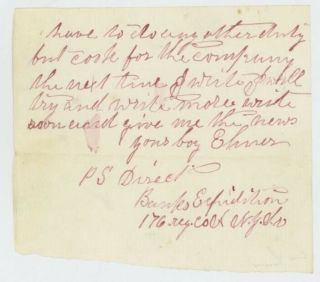 have to do any other duty
but cook for the company
the next time I write I will
try and write more write
soon and give me the news
your boy Elmer
PS Direct
Banks Expidition
176 reg co N.Y.